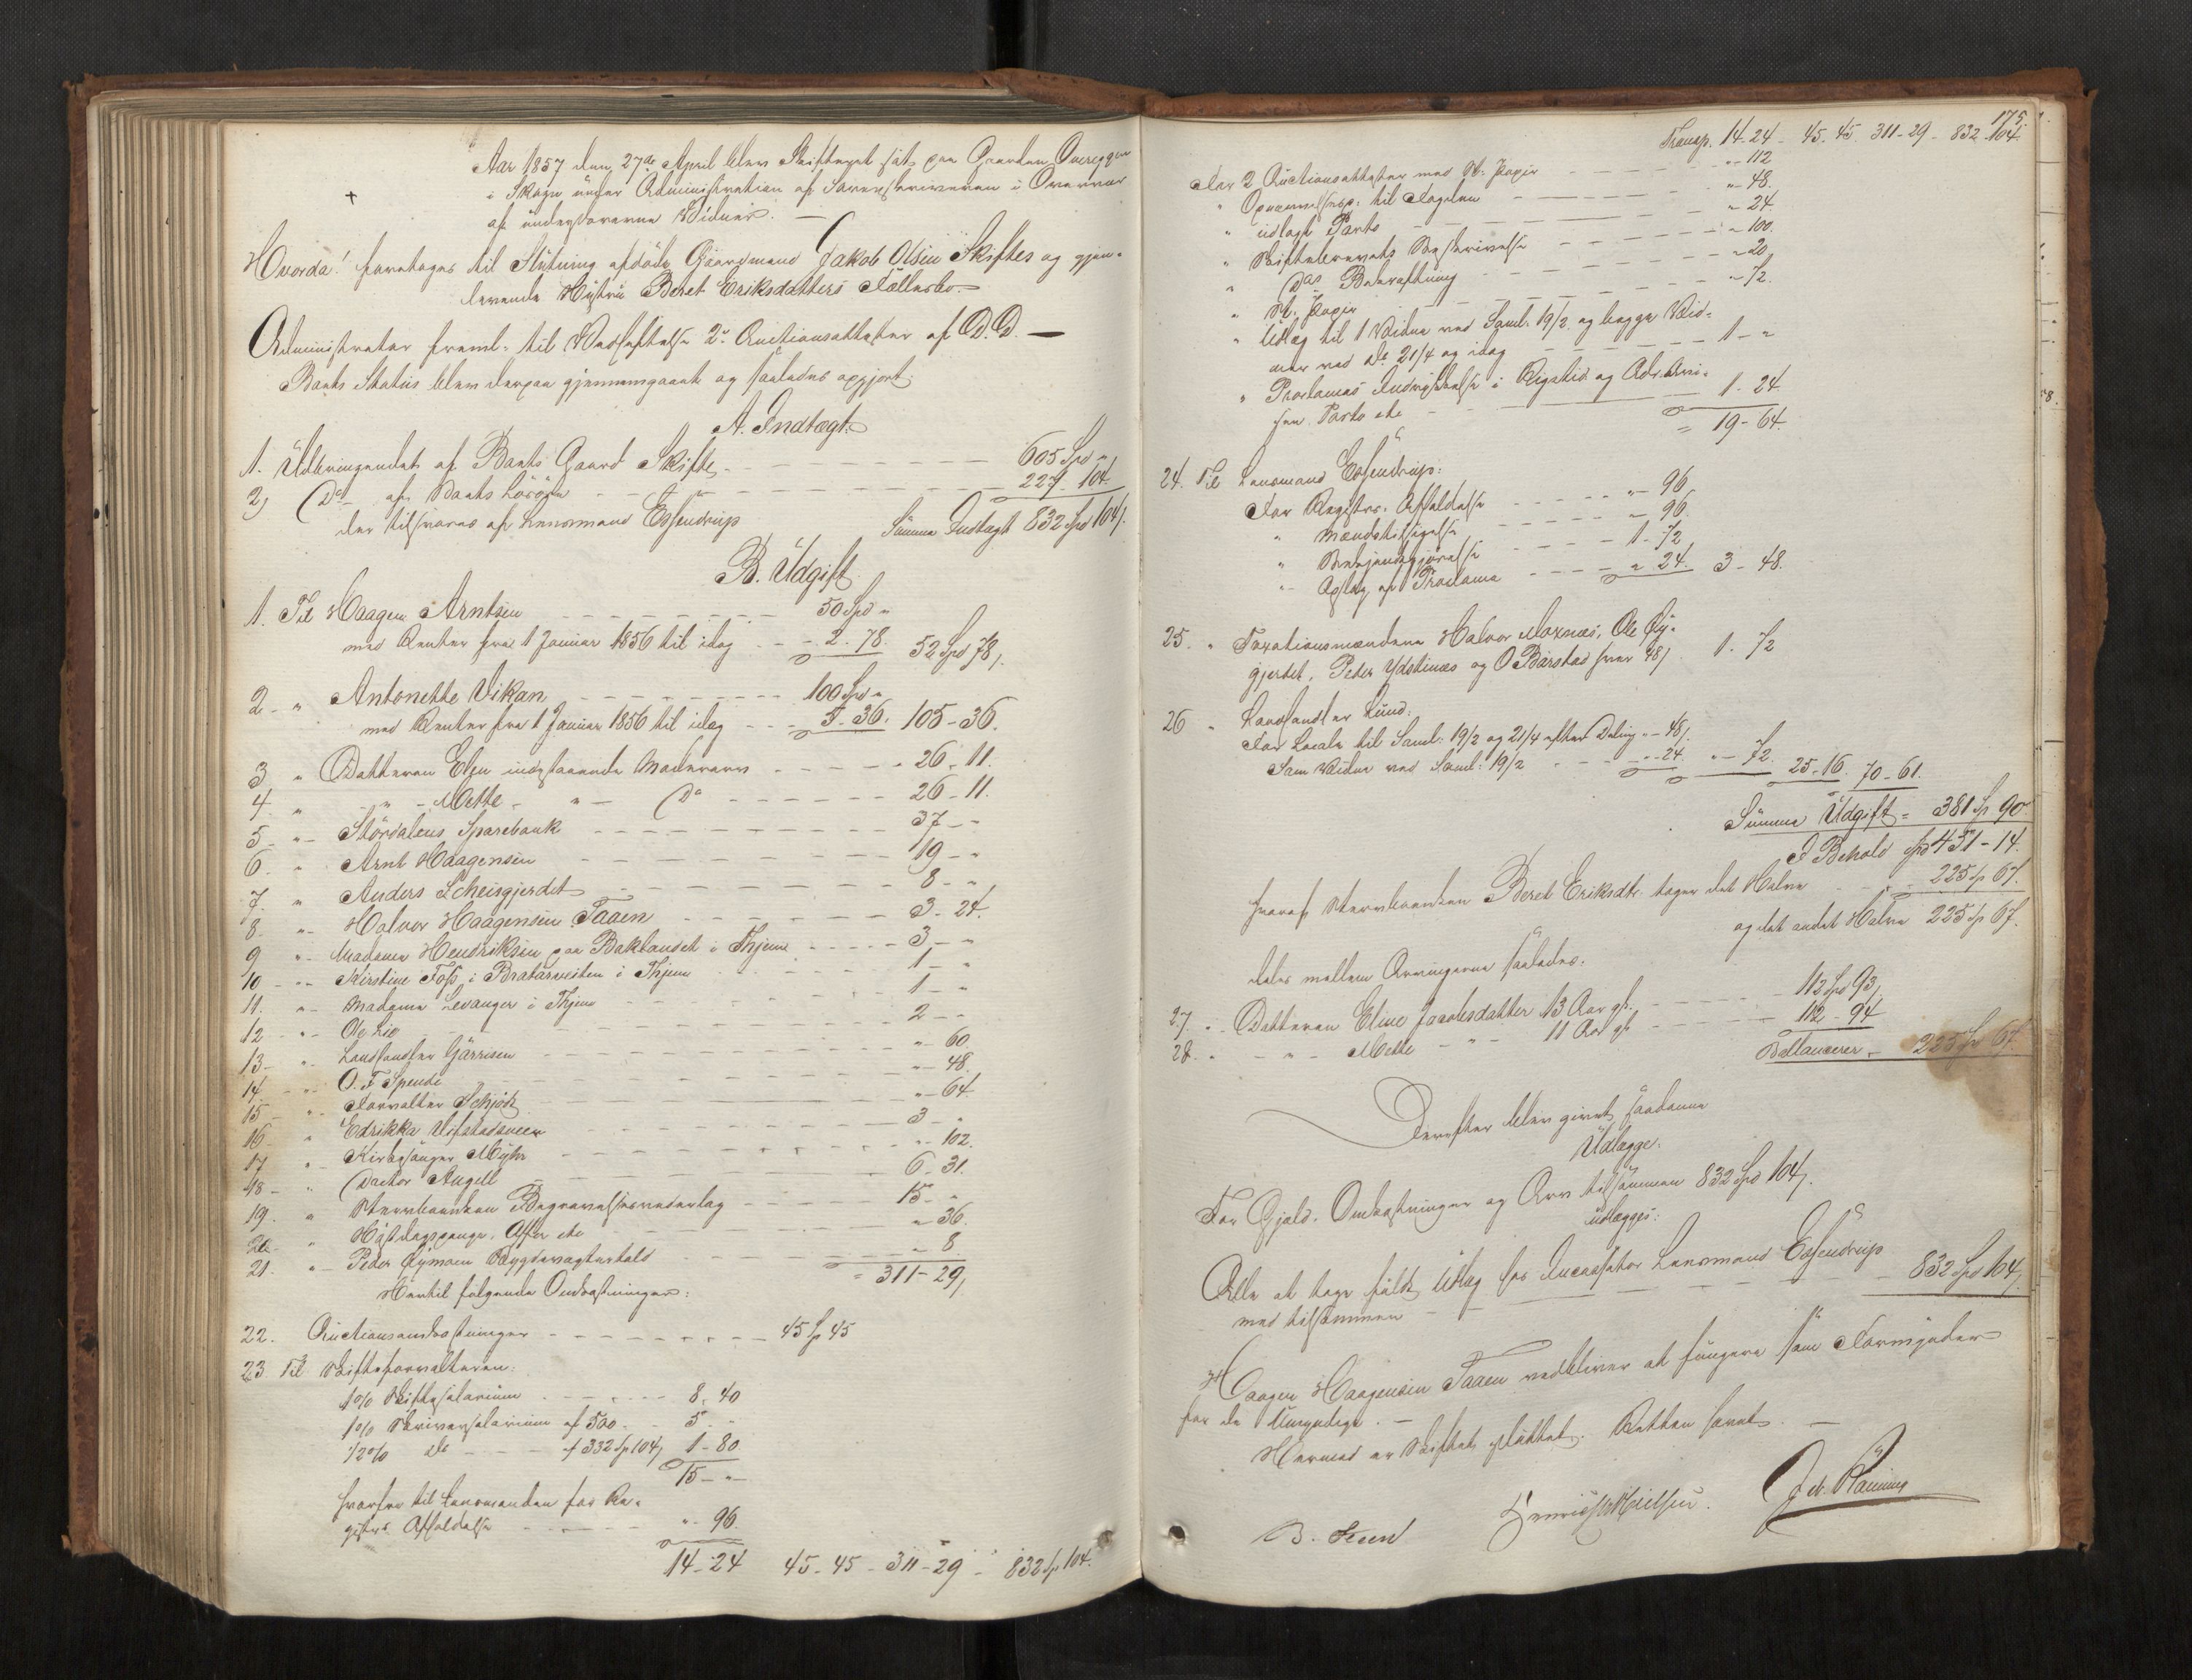 Aar 1857 den 27de April blev Skifteret sat paa Gaarden Overeggen
i Skogn under Administration af Sorenskriveren i Overvær
af underskrevne Vidner. —
Hvorda! foretoges til Slutning afdøde Gaardmand Jakob Olsen Skiftes og gjen-
levende Hustru Beret Eriksdatters Fællesbo.
Administrator freml. til Vedheftelse 2 Auctionsattester af D. D. —
Boets Status blev derpaa gjennemgaaet og saaledes opgjort:
A. Indtægt:
1. Udbringendet af Boets Gaard Skifte - - - 605 Spd "
2, Do af Boets Løsøre - - - 227 - 104.
der tilsvares af Lensmand Essendrup Summa Indtægt 832 Spd 104/.
B. Udgift
1. Til Haagen Arntsen - - - 50 Spd "
med Renter fra 1 Januar 1856 til idag - - 2 - 78. 52 Spd 78/.
2 - " Antonette Vikan - - - 100 Spd "
med Renter fra 1 Januar 1856 til idag - - - 5 - 36. 105 - 36.
3 " Datteren Elen indestaaende Mødrearv - - - 26 - 11.
4. " - " - Mette - " - Do - - - 26 - 11.
5 - " - Størdalens Sparebank - - - 37 - "
6. " Arnt Haagensen - - - 19 - "
7. " Anders Scheisgjerdet - - - 8 - "
8. " - Halvor Haagensen Taaen - - - 3 - 24.
9 " - Madame Hendriksen paa Baklandet i Thjem - - - 3 - "
10 - " - Kirstine Foss i Bratørveiten i Thjem - - - 1 - "
11. " - Madame Levanger i Thjem - - - 1 - "
12 - " - Ole Lie - - - 2 - "
13 - " - Landhandler Gärrisen - - - " - 60.
14. - " - O. F. Spende - - - " - 48.
15 - " - Forvalter Schjøth - - - " - 64.
16 - " Edrikka Ulfstadsveen - - - 3 - "
17 " - Kirkesanger Myhr - - - " - 102.
18 - " Doctor Angell - - - 6 - 31.
19. " Sterboenken Begravelsesvederlag - - - 15 - "
20 - " Høstdagspenge, Offer etc - - - " - 36.
21. " - Peder Rymoen Bygdevægterhold - - - " - 8
= 311 - 29/
Hertil følgende Omkostninger:
22. Auctionsomkostninger - - - 45 Sp 45
23. Til Skifteforvalteren:
1% Skiftesalarium - - - 8 - 40
1% Skriversalarium af 500 - - 5 - "
1/2% do - - - af 332 Sp 104/ 1 - 80
15 - "
hvorfra til Lensmanden for Re-
gistrs. Afholdelse - - - " - 96.
14 - 24 45 - 45 - 311 - 29 - 832 Sp 104.
175.
Transp. 14 - 24 - 45 - 45 311 - 29 - 832 - 104.
For 2 Auctionsattester med St. Papir - - - " - 112
" Opnævnelsesp: til Fogden - - - " - 48.
" udlagt Porto - - - " - 24
" Skiftebrevets Beskrivelse - - - " - 100.
" Do Bekræftning - - - " - 20
" St. Papir - - - " - 72.
" Udlæg til 1 Vidne ved Saml: 19/2 og begge Vid-
ner ved do 21/4 og idag - - - 1 - "
" Proclamas Indrykkelse i Rigstid. og Adr.avi-
sen Porto etc - - - 1 - 24
= 19 - 64.
24. Til Lensmand Essendrup:
For Registrs. Afholdelse - - - " - 96
" Mændstilsigelse - - - " - 96.
" Bekjendtgjørelse - - - 1 - 72
" - Opslag af Proclama - - - " 24. 3 - 48.
25 " Taxationsmændene Halvor Moxnæs, Ole Ry-
gjerdet, Peder Ydstinæs og O Barstad hver 48/ 1 - 72
26 " Landhandler Lund:
For Locale til Saml: 19/2 og 21/4 efter Deling " - 48/.
Som Vidne ved Saml: 19/2 - - " - 24. " - 72. 25 - 16. 70 - 61.
Summa Udgift = 381 Sp. 90
I Behold Spd 451 - 14.
hvoraf Sterboenken Beret Eriksdtr. tager det Halve - - 225 Sp 67.
og det andet Halve 225 Sp 67.
deles mellem Arvingerne saaledes:
27. " - Datteren Eline Jacobsdatter 13 Aar gl. - - - 112 Spd 93/
28. " - " - Mette - " - 11 Aar gl - - - 112 - 94
Ballancerer - 225 Sp 67.
Derefter blev givet saadanne
Udlægge:
For Gjeld, Omkostninger og Arv tilsammen 832 Spd 104/.
udlægges:
Alle at tage fuldt Udlæg hos Incassator Lensmand Essendrup
med tilsammen - - - 832 Spd 104/.
Haagen Haagensen Taaen vedbliver at fungere som Formynder
for de Umyndige. —
Hermed er Skiftet sluttet. Retten hævet. —
B. Steen